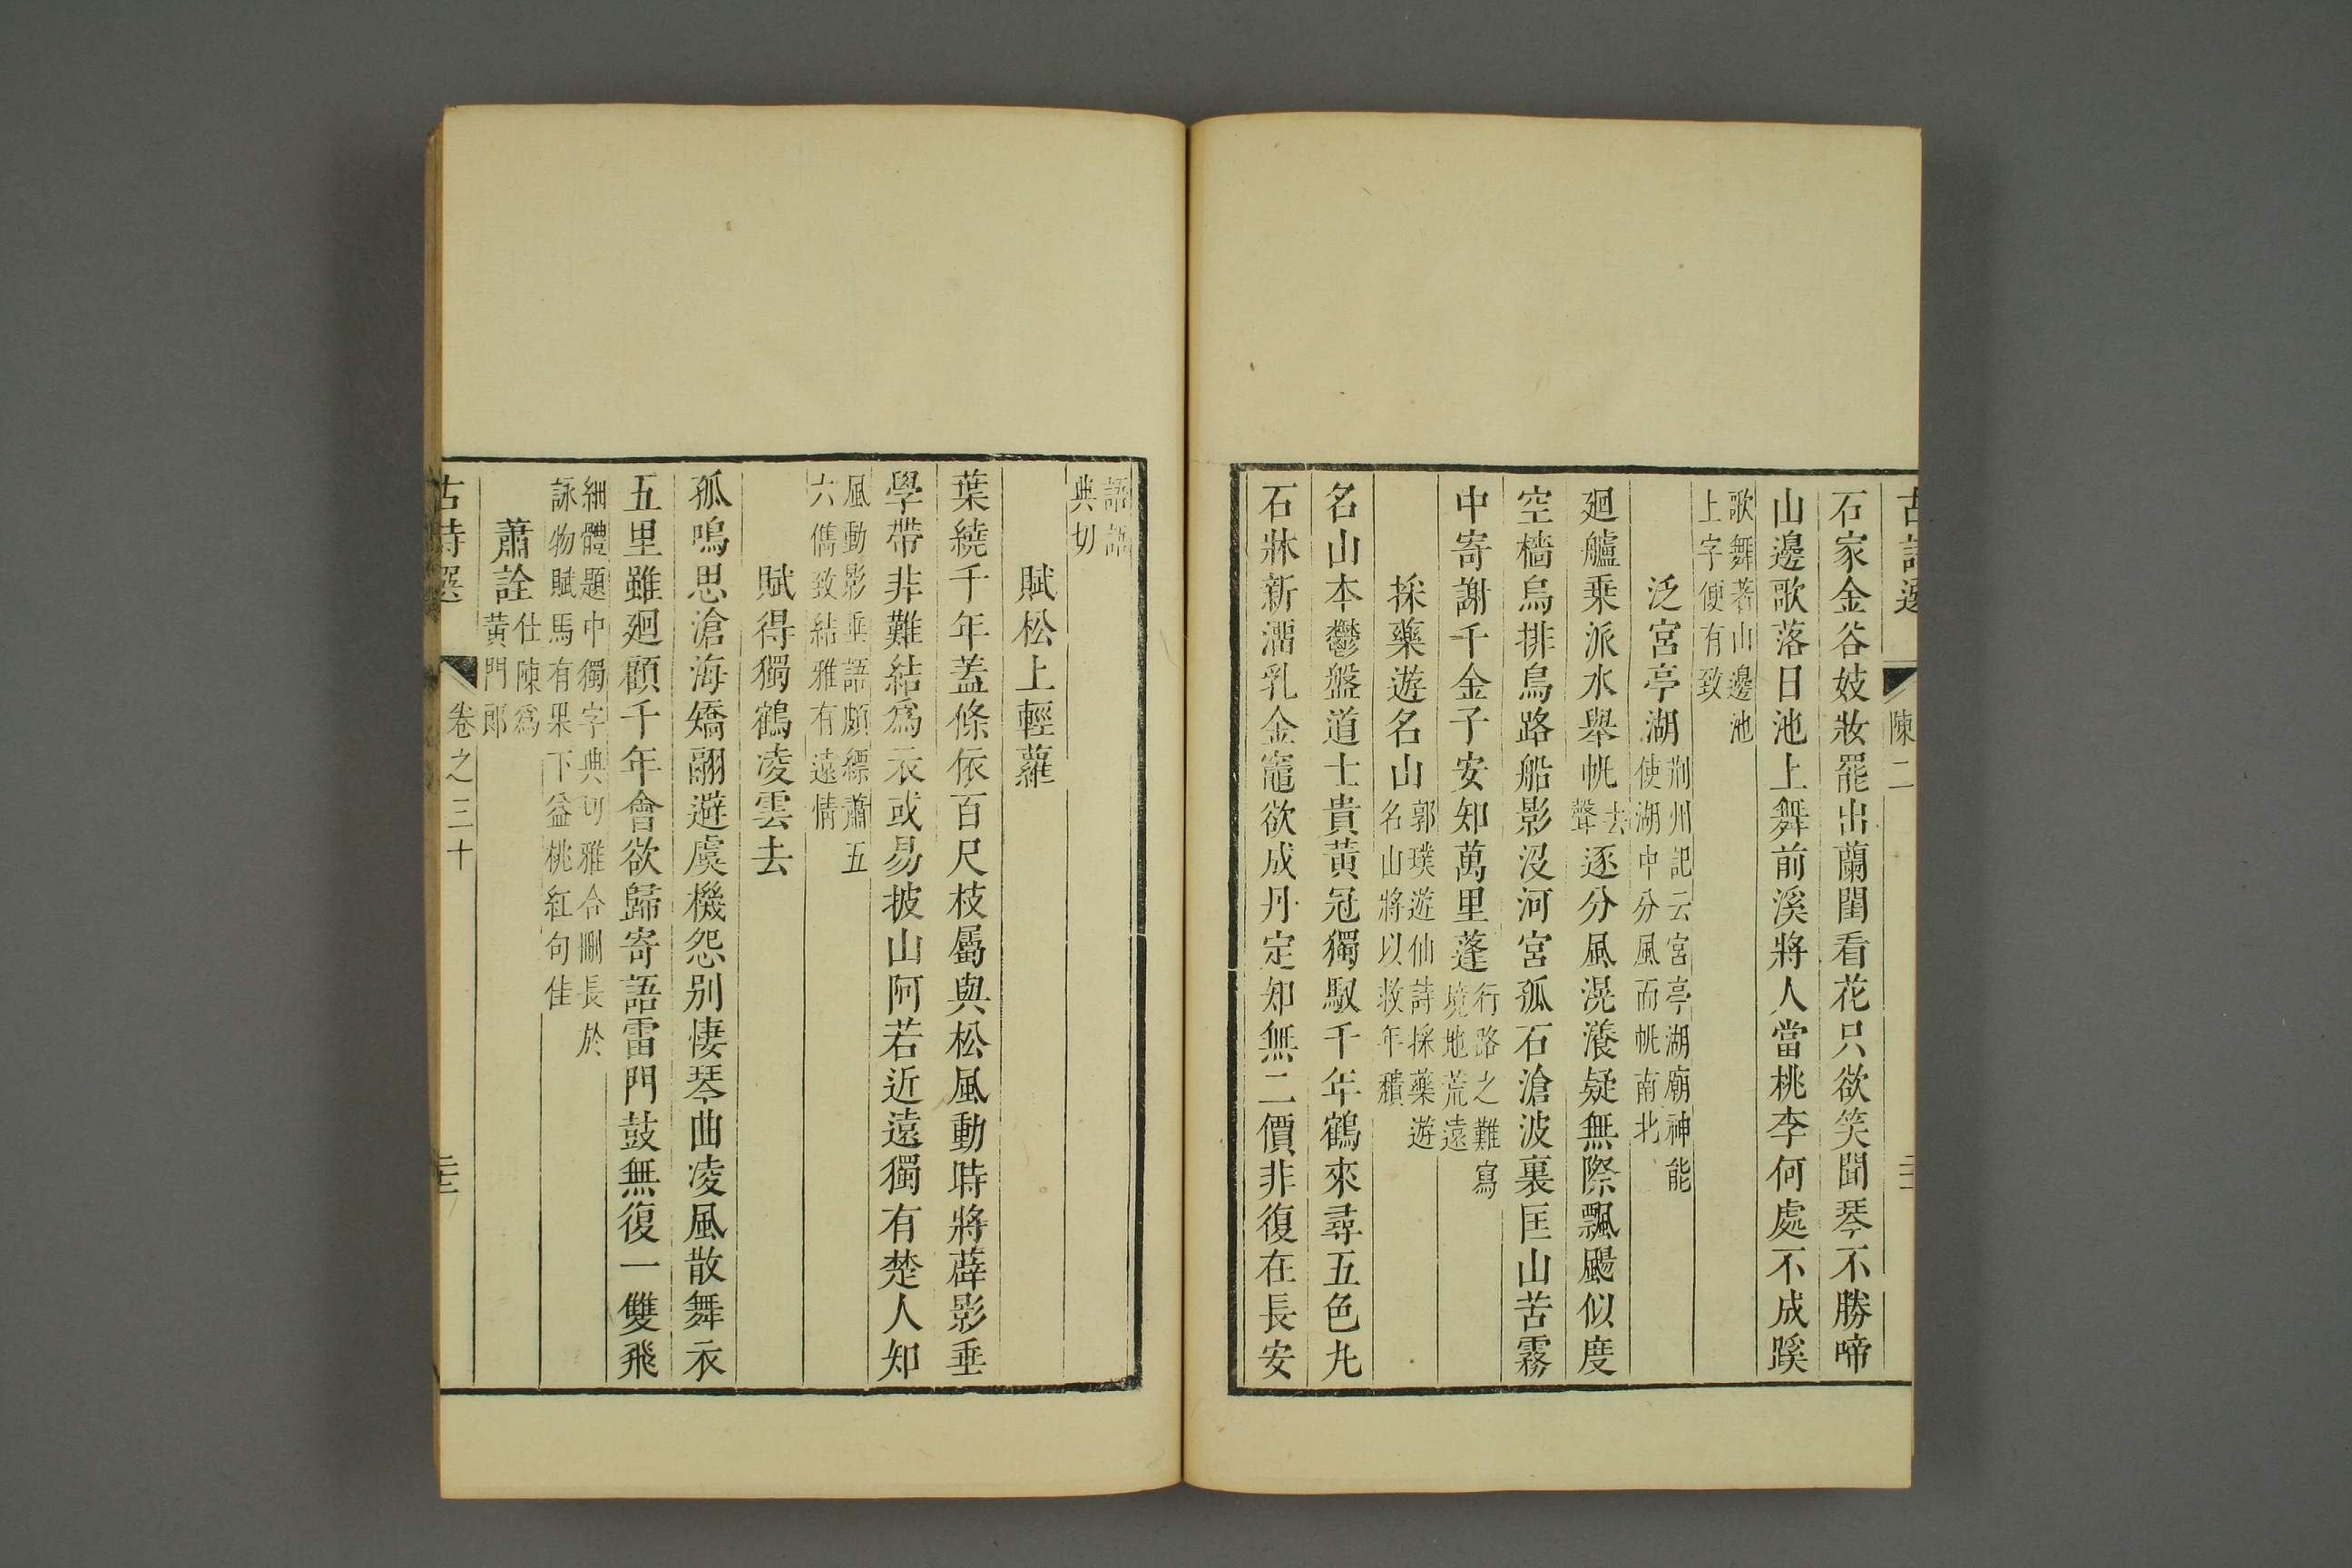 古詩選
陳二
石家金谷妓妝罷出蘭閨看花只欲笑聞琴不勝啼
山邊歌落日池上舞前溪將人當桃李何處不成蹊
歌舞著山邊池
上字便有致
泛宮亭湖
荆州記云宮亭湖廟神能
使湖中分風而帆南北
廻艫乗派水舉帆去聲逐分風滉瀁疑無際飄颺似度
空檣烏排鳥路船影没河宮孤石滄波裏匡山苦霧
中寄謝千金子安知萬里蓬
行路之難寫
境地荒遠
採藥遊名山
郭璞遊仙詩採藥遊
名山將以救年穨
名山本鬱盤道士貴黃冠獨馭千年鶴來尋五色丸
石牀新溜乳金竈欲成丹定知無二價非復在長安
語語
典切
賦松上輕蘿
葉繞千年蓋條依百尺枝屬與松風動時將薜影垂
學帶非難結爲衣或易披山阿若近遠獨有楚人知
風動影垂語頗縹蕭五
六儁致結雅有遠情
賦得獨鶴凌雲去
孤鳴思滄海矯翮避虞機怨別悽琴曲凌風散舞衣
五里雖廻顧千年會欲歸寄語雷門鼓無復一雙飛
細體題中獨字典切雅合刪長於
詠物賦馬有果下益桃紅句佳
蕭詮
仕陳爲
黃門郎
古詩選
卷之三十